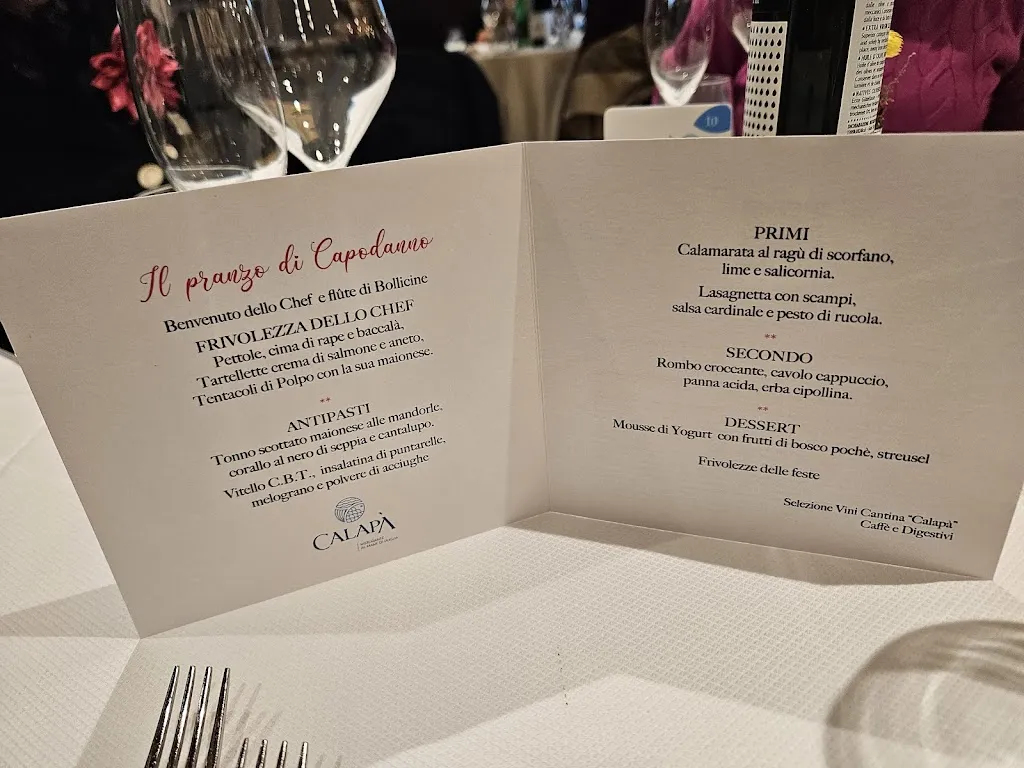 Il pranzo di Capodanno
Benvenuto dello Chef e flûte di Bollicine
FRIVOLEZZA DELLO CHEF
Pettole, cima di rape e baccalà,
Tartellette crema di salmone e aneto,
Tentacoli di Polpo con la sua maionese.
**
ANTIPASTI
Tonno scottato maionese alle mandorle.
corallo al nero di seppia e cantalupo.
Vitello C.B.T., insalatina di puntarelle,
melograno e polvere di acciughe
CALAPÀ
PRIMI
Calamarata al ragù di scorfano,
lime e salicornia.
Lasagnetta con scampi,
salsa cardinale e pesto di rucola.
**
SECONDO
Rombo croccante, cavolo cappuccio,
panna acida, erba cipollina.
**
DESSERT
Mousse di Yogurt con frutti di bosco pochè, streusel
Frivolezze delle feste
Selezione Vini Cantina "Calapà"
Caffè e Digestivi